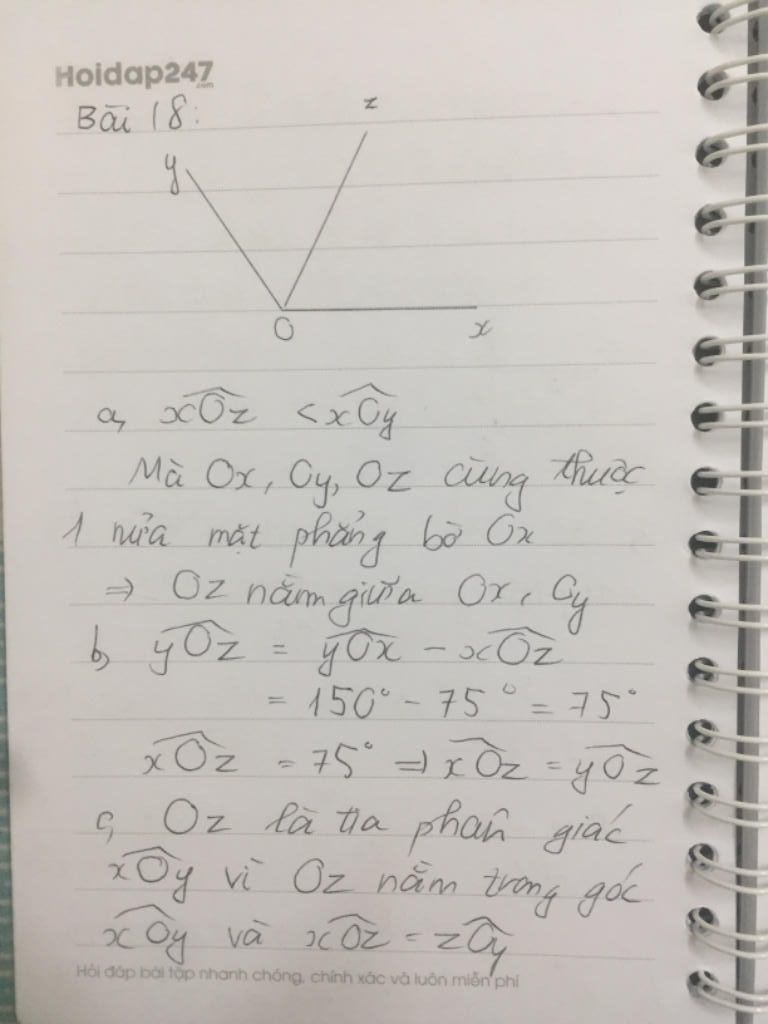 Hoidap247
.com
Bài 18:
z
y
O
x
a, xÔz < xÔy
Mà Ox, Oy, Oz cùng thuộc
1 nửa mặt phẳng bờ Ox
⇒ Oz nằm giữa Ox, Oy
b, yÔz = yÔx - xÔz
= 150° - 75° = 75°
xÔz = 75° ⇒ xÔz = yÔz
c, Oz là tia phân giác
xÔy vì Oz nằm trong góc
xÔy và xÔz = zÔy
Hỏi đáp bài tập nhanh chóng, chính xác và luôn miễn phí